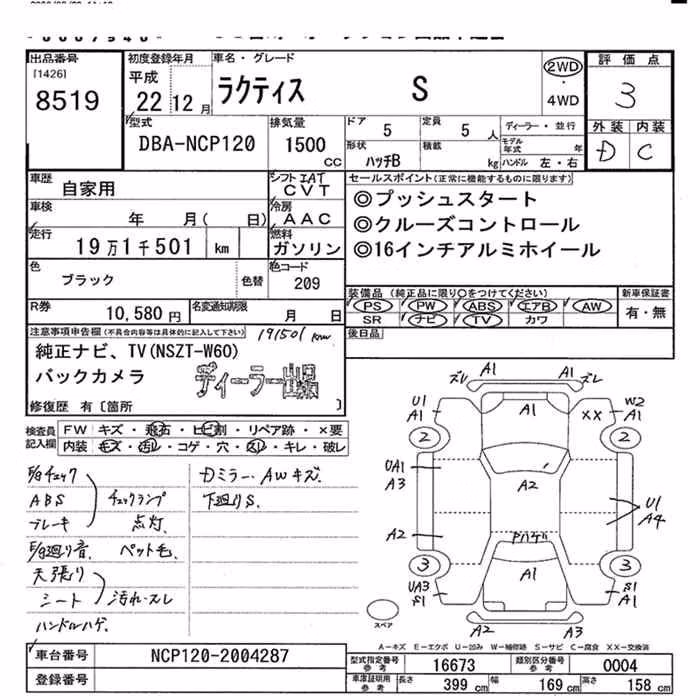 出品番号
[1426]
8519
初度登録年月
平成
22 12月
車名・グレード
ラクティス S
2WD
・
4WD
評価点
3
外装 内装
D C
型式
DBA-NCP120
排気量
1500
CC
ドア 5
定員 5 人
ディーラー・並行
形状 ハッチB
積載 kg
モデル年式 年
ハンドル 左・右
車歴
自家用
シフト IAT
CVT
車検
年 月( 日)
冷房
AAC
走行
19万1千501 km
燃料
ガソリン
色
ブラック
色替
色コード
209
R券
10,580円
名変通知期限
月 日
セールスポイント(正常に機能するものに限ります)
◎プッシュスタート
◎クルーズコントロール
◎16インチアルミホイール
装備品 (純正品に限り○をつけてください)
PS PW ABS エアB AW
SR ナビ TV カワ
新車保証書
有・無
後日品
注意事項申告欄(不具合内容等は具体的に記入して下さい)
191501 km
純正ナビ、TV(NSZT-W60)
バックカメラ
ディーラー出品
修復歴 有〔箇所
検査員
記入欄
FW キズ・飛石・ヒビ割・リペア跡・×要
内装 キズ・汚れ・コゲ・穴・スレ・キレ・破レ
E/gチェック
ABS
ブレーキ
チェックランプ
点灯
E/g廻り音. ペット毛.
天張り
シート
汚れ・スレ
ハンドルハゲ.
Dミラー・AWキズ.
下廻りS.
ズレ A1 A1 ズレ
U1
A1
A1
XX
W2
A1
2
2
UA1
A3
A2
U1
A4
A2
Pハゲ
3
3
A1
UA3
S1
S1
A1
スペア
A2 A3
A-キズ E-エクボ U-凹み W-補修跡 S-サビ C-腐食 XX-交換済
車台番号
NCP120-2004287
登録番号
型式指定番号
参考
16673
類別区分番号
参考
0004
車庫証明用
参考
長さ 399 cm
幅 169 cm
高さ 158 cm